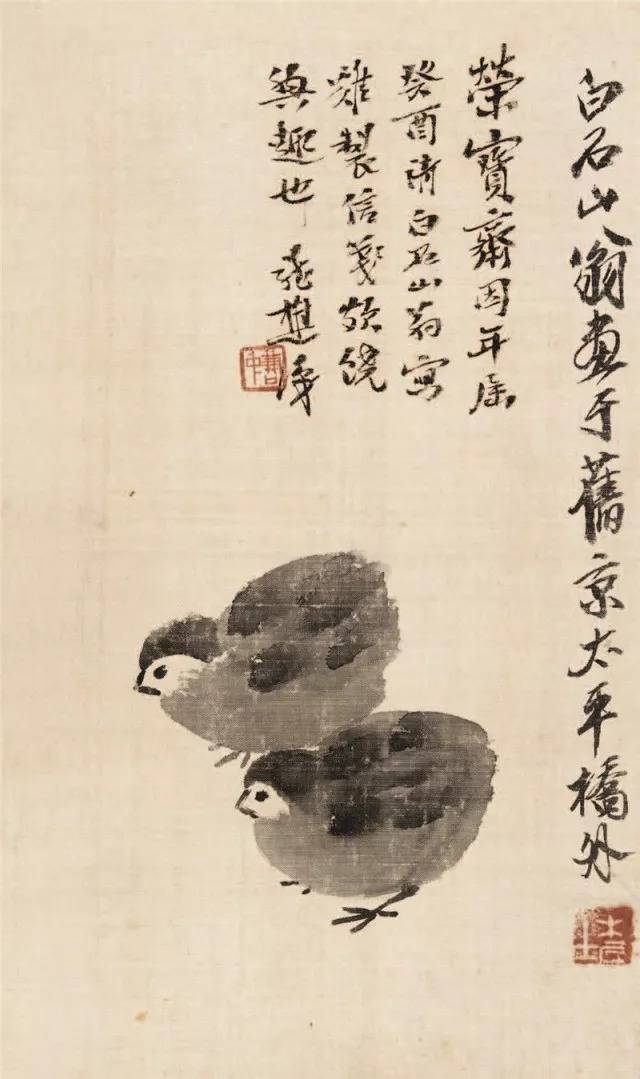 白石山翁畫于舊京太平橋外
木居士
榮寶齋因年届
癸酉請白石山翁寫
雞製信箋頗饒
興趣也